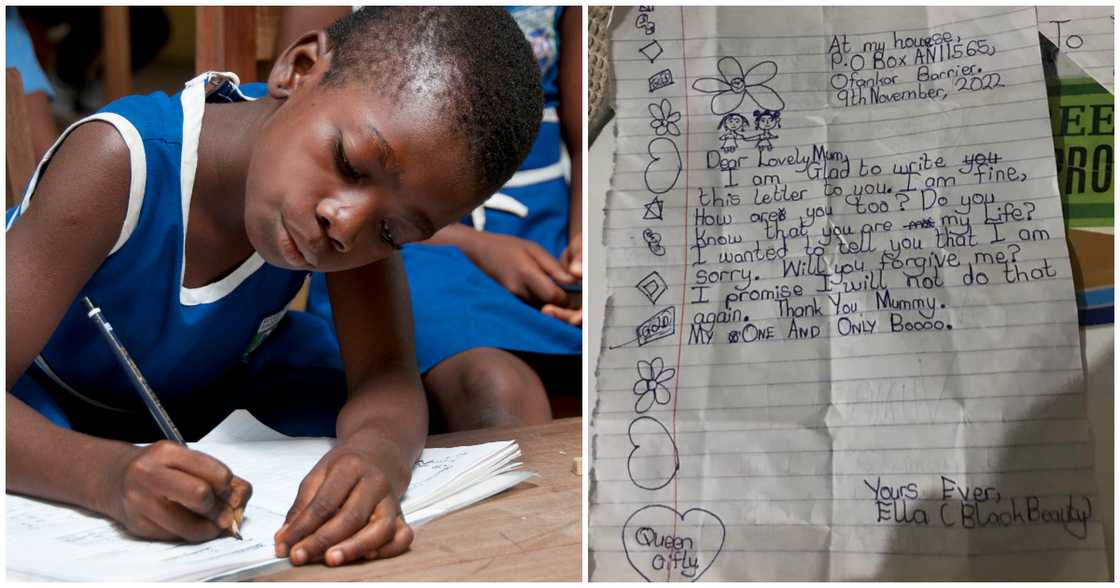 At my house,
P.O Box AN11565,
Ofankor Barrier.
9th November, 2022
To
GOLD
Dear Lovely Mum,
I am Glad to write you
this letter to you. I am fine,
How are you too? Do you
Know that you are my Life?
I wanted to tell you that I am
sorry. Will you forgive me?
I promise I will not do that
again. Thank You Mummy.
My ONE AND ONLY Boooo.
GOLD
Yours Ever,
Ella (Black Beauty)
Queen
EE
PRO